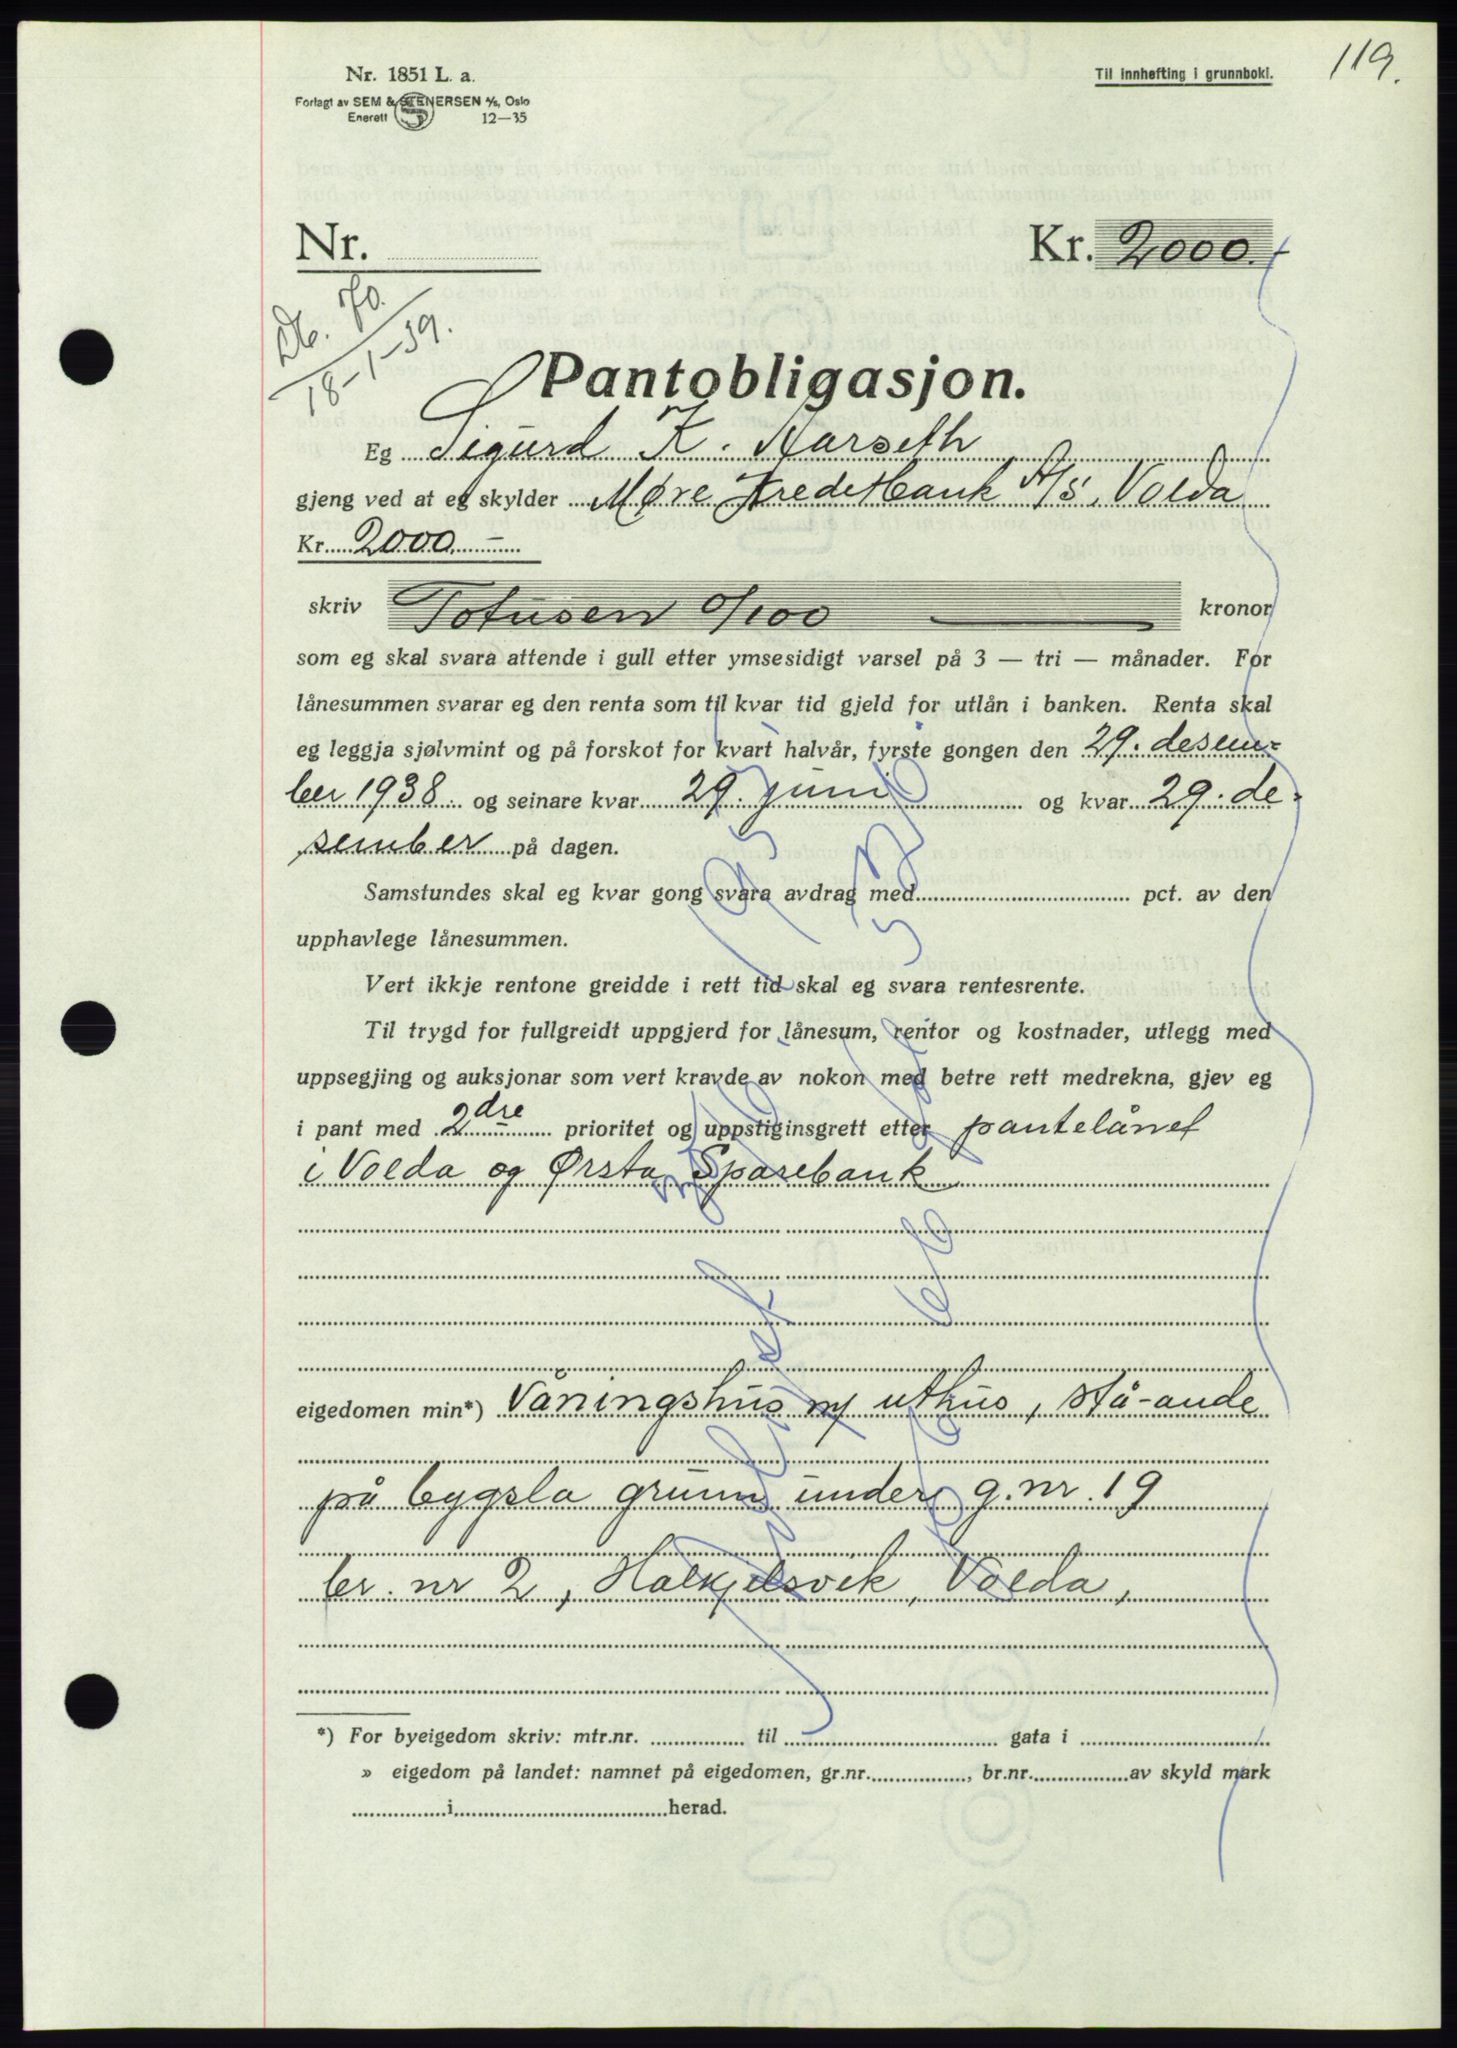 119.
Nr. 1851 L. a.
Til innhefting i grunnboki.
Forlagt av SEM & STENERSEN A/S, Oslo
Enerett 12—35
Nr.
Kr. 2000.
Db. 70.
18-1-39.
Pantobligasjon.
Eg Sigurd K. Aarseth
gjeng ved at eg skylder Møre Kreditbank A/S, Volda
Kr. 2000.—
skriv Totusen 0/100 kronor
som eg skal svara attende i gull etter ymsesidigt varsel på 3 — tri — månader. For
lånesummen svarar eg den renta som til kvar tid gjeld for utlån i banken. Renta skal
eg leggja sjølvmint og på forskot for kvart halvår, fyrste gongen den 29. desem-
ber 1938 og seinare kvar 29. juni og kvar 29. de-
sember på dagen.
Samstundes skal eg kvar gong svara avdrag med pct. av den
upphavlege lånesummen.
Vert ikkje rentone greidde i rett tid skal eg svara rentesrente.
Til trygd for fullgreidt uppgjerd for lånesum, rentor og kostnader, utlegg med
uppsegjing og auksjonar som vert kravde av nokon med betre rett medrekna, gjev eg
i pant med 2dre prioritet og uppstiginsgrett etter pantelånet
i Volda og Ørsta Sparebank
eigedomen min*) Våningshus m/ uthus, stå-ande
på bygsla grunn under g. nr. 19
br. nr 2, Halkjelsvik, Volda,
*) For byeigedom skriv: mtr.nr. til gata i
» eigedom på landet: namnet på eigedomen, gr.nr. , br.nr. av skyld mark
i herad.